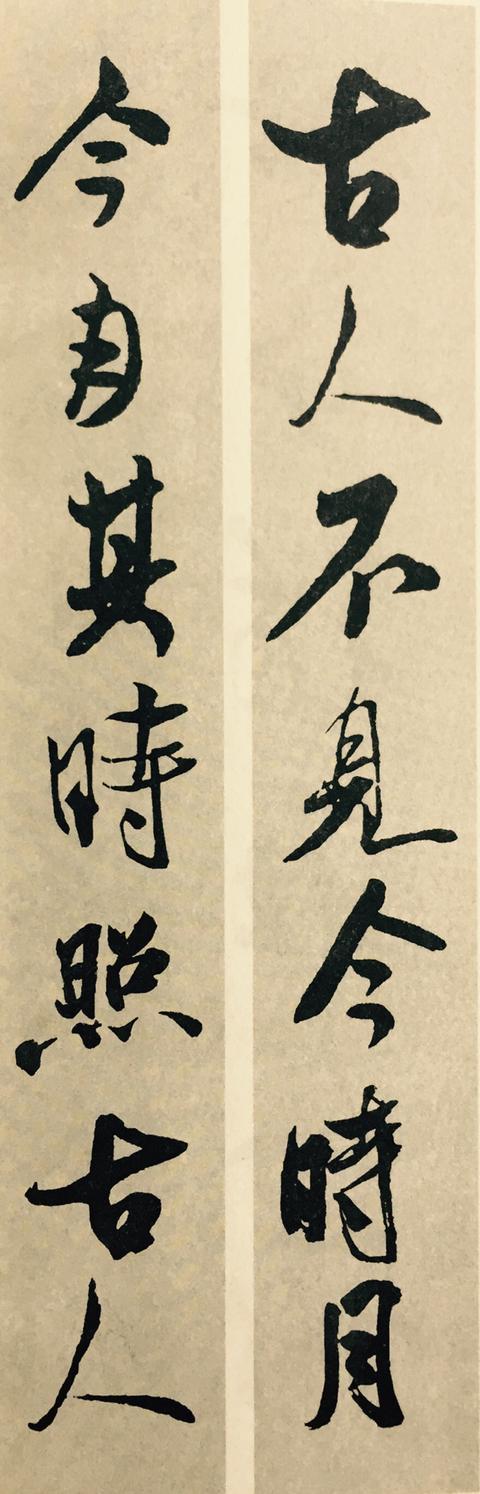 古人不見今時月
今月其時照古人